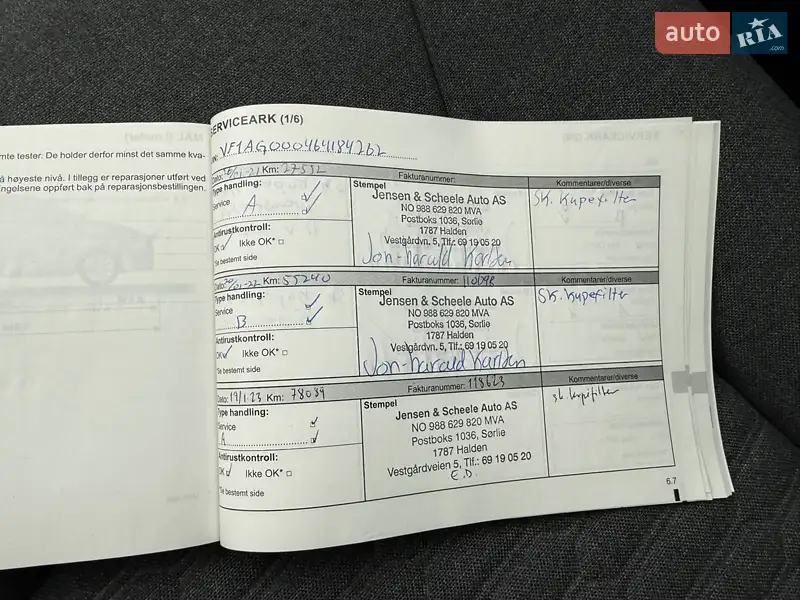 auto RIA .com
mte tester. De holder derfor minst det samme kva-
å høyeste nivå. I tillegg er reparasjoner utført ved
ngelsene oppført bak på reparasjonsbestillingen.
SERVICEARK (1/6)
VF1AG000464184262
Dato: /01-21 Km: 27552 Fakturanummer: Kommentarer/diverse
Type handling:
Service
A
Antirustkontroll:
OK Ikke OK*
*Se bestemt side
Stempel
Jensen & Scheele Auto AS
NO 988 629 820 MVA
Postboks 1036, Sørlie
1787 Halden
Vestgårdvn. 5, Tlf.: 69 19 05 20
Jon-harald Karlsen
Sk. Kupefilter
Dato: 20/01-22 Km: 55240 Fakturanummer: Kommentarer/diverse
Type handling:
Service
B
Antirustkontroll:
OK Ikke OK*
*Se bestemt side
Stempel
Jensen & Scheele Auto AS
NO 988 629 820 MVA
Postboks 1036, Sørlie
1787 Halden
Vestgårdvn. 5, Tlf.: 69 19 05 20
Jon-harald Karlsen
Sk. Kupefilter
Dato: 19/1.23 Km: 78089 Fakturanummer: 118623 Kommentarer/diverse
Type handling:
Service
A
Antirustkontroll:
OK Ikke OK*
*Se bestemt side
Stempel
Jensen & Scheele Auto AS
NO 988 629 820 MVA
Postboks 1036, Sørlie
1787 Halden
Vestgårdveien 5, Tlf.: 69 19 05 20
E.D.
sk kupefilter
6.7